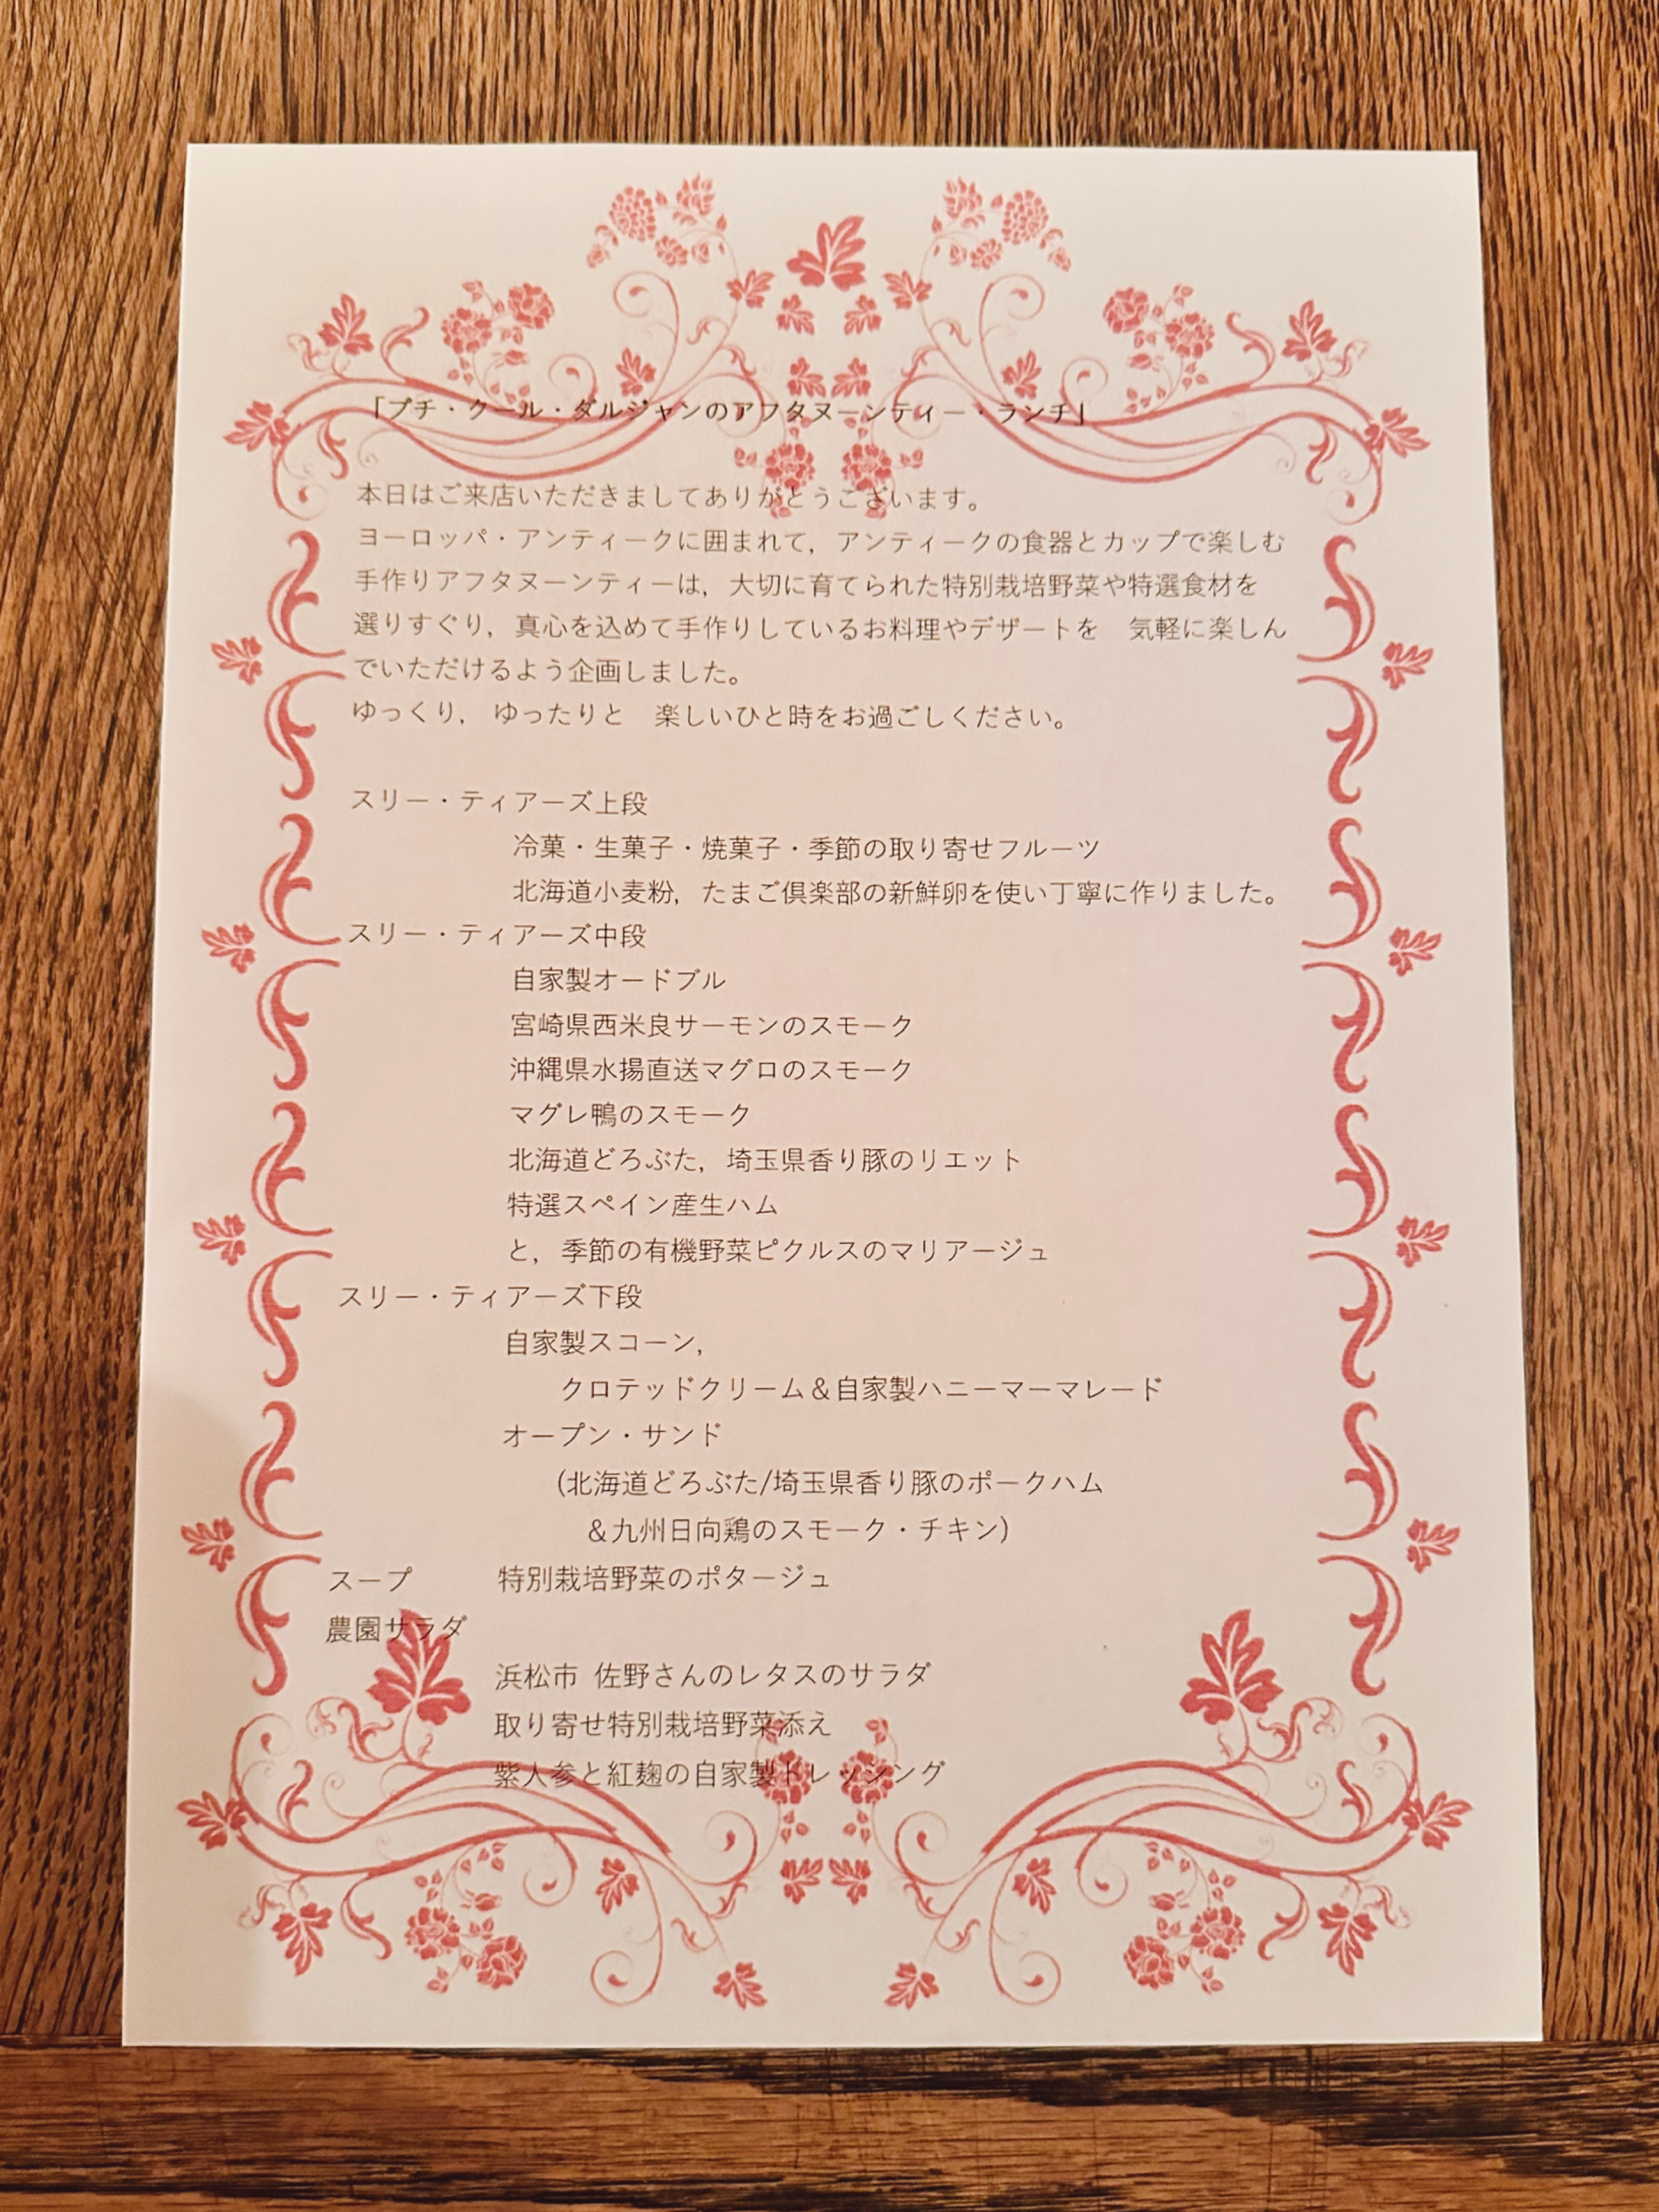 「プチ・クール・ダルジャンのアフタヌーンティー・ランチ」
本日はご来店いただきましてありがとうございます。
ヨーロッパ・アンティークに囲まれて，アンティークの食器とカップで楽しむ
手作りアフタヌーンティーは，大切に育てられた特別栽培野菜や特選食材を
選りすぐり，真心を込めて手作りしているお料理やデザートを　気軽に楽しん
でいただけるよう企画しました。
ゆっくり，ゆったりと　楽しいひと時をお過ごしください。
スリー・ティアーズ上段
冷菓・生菓子・焼菓子・季節の取り寄せフルーツ
北海道小麦粉，たまご倶楽部の新鮮卵を使い丁寧に作りました。
スリー・ティアーズ中段
自家製オードブル
宮崎県西米良サーモンのスモーク
沖縄県水揚直送マグロのスモーク
マグレ鴨のスモーク
北海道どろぶた，埼玉県香り豚のリエット
特選スペイン産生ハム
と，季節の有機野菜ピクルスのマリアージュ
スリー・ティアーズ下段
自家製スコーン，
クロテッドクリーム＆自家製ハニーマーマレード
オープン・サンド
(北海道どろぶた/埼玉県香り豚のポークハム
＆九州日向鶏のスモーク・チキン)
スープ　　　特別栽培野菜のポタージュ
農園サラダ
浜松市 佐野さんのレタスのサラダ
取り寄せ特別栽培野菜添え
紫人参と紅麹の自家製ドレッシング